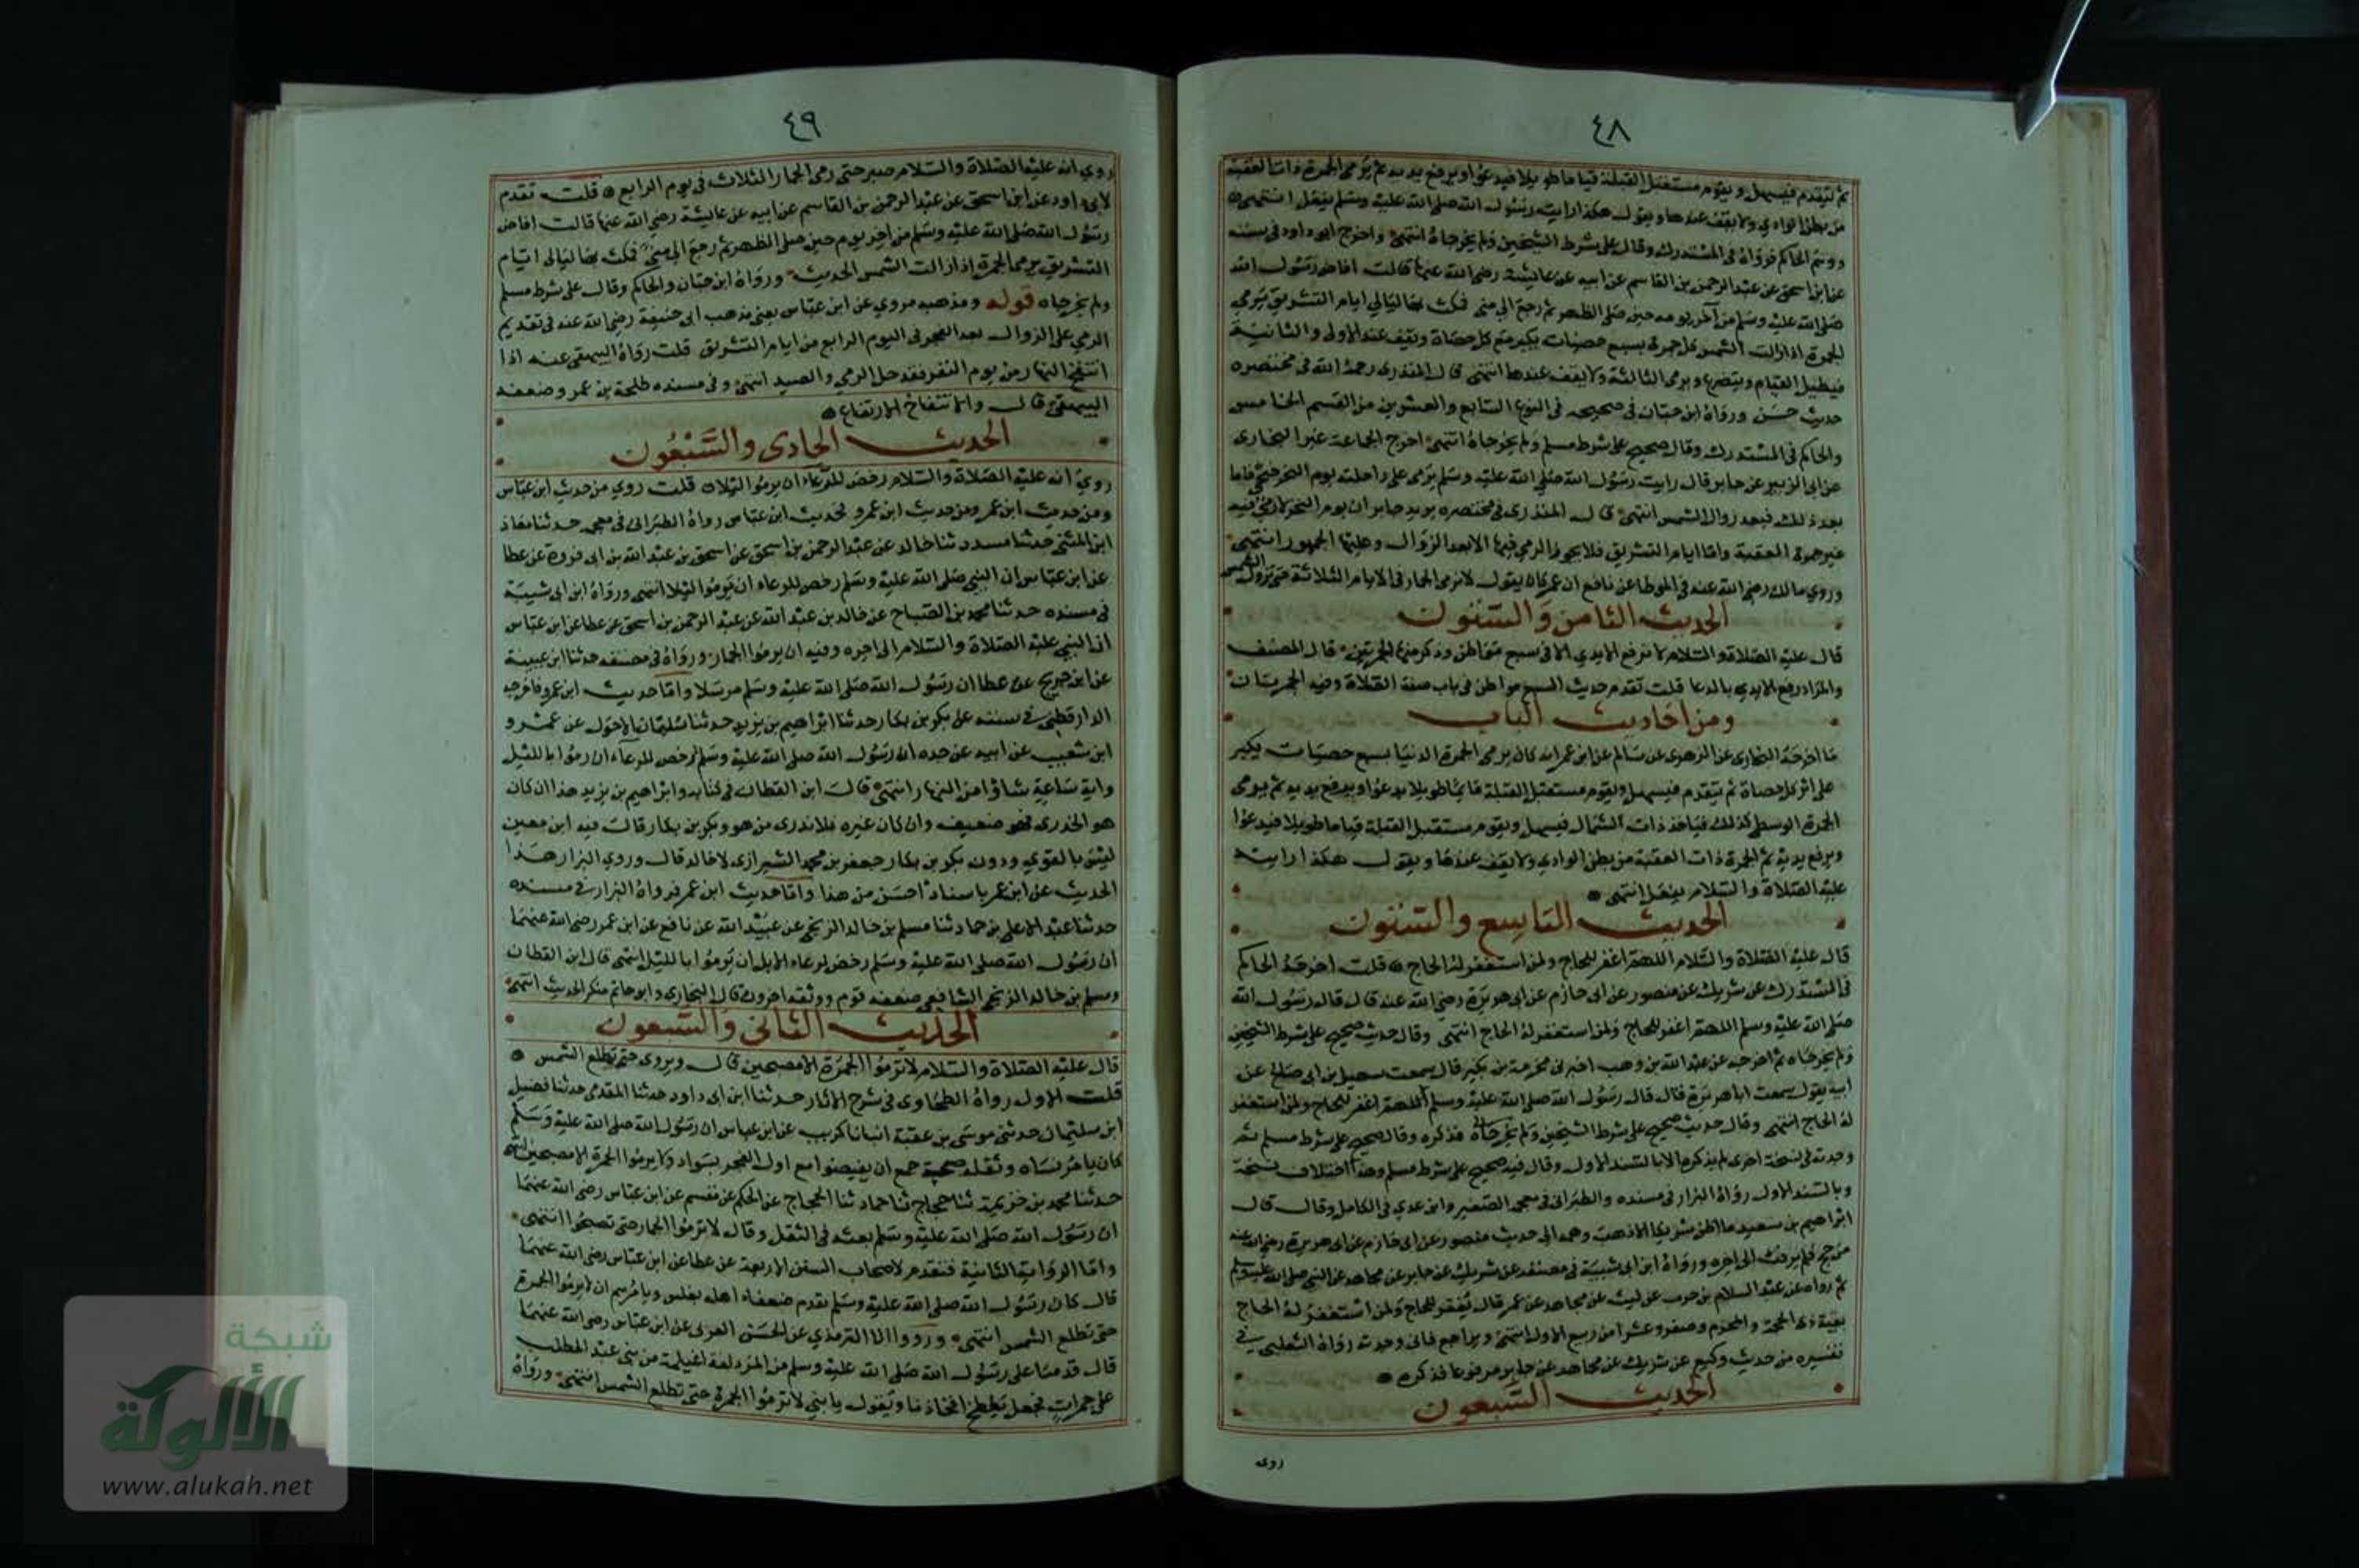 ٤٨
ثم يتقدم فيسهل ويقوم مستقبل القبلة قياما طويلا فيدعو ويرفع يديه ثم يرمي الجمرة ذات العقبة
من بطن الوادي ولا يقف عندها ويقول هكذا رايت رسول الله صلى الله عليه وسلم يفعل انتهى
ووهم الحاكم فرواه في المستدرك وقال على شرط الشيخين ولم يخرجاه انتهى واخرج ابو داود في سننه
عن ابن اسحق عن عبد الرحمن بن القاسم عن ابيه عن عايشة رضي الله عنها قالت افاض رسول الله
صلى الله عليه وسلم من آخر يومه حين صلى الظهر ثم رجع الى منى فمكث بها ليالي ايام التشريق يرمي
الجمرة اذا زالت الشمس كل جمرة بسبع حصيات يكبر مع كل حصاة ويقف عند الاولى والثانية
فيطيل القيام ويتضرع ويرمي الثالثة ولا يقف عندها انتهى قال المنذري رحمه الله في مختصره
حديث حسن ورواه ابن حبان في صحيحه في النوع السابع والعشرين من القسم الخامس
والحاكم في المستدرك وقال صحيح على شرط مسلم ولم يخرجاه انتهى اخرج الجماعة غير البخاري
عن ابي الزبير عن جابر قال رايت رسول الله صلى الله عليه وسلم يرمي على راحلته يوم النحر ضحى فاما
بعد ذلك فبعد زوال الشمس انتهى قال المنذري في مختصره يريد جابر ان يوم النحر لا رمي فيه
غير جمرة العقبة واما ايام التشريق فلا يجوز الرمي فيها الا بعد الزوال وعليه الجمهور انتهى
وروى مالك رضي الله عنه في الموطا عن نافع ان عمر كان يقول لا ترمى الجمار في الايام الثلاثة حتى تزول الشمس
الحديث الثامن والستون
قال عليه الصلاة والسلام لا ترفع الايدي الا في سبع مواطن وذكر منها الجمرتين قال المصنف
والمراد رفع الايدي بالدعا قلت تقدم حديث السبع مواطن في باب صفة الصلاة وفيه الجمرتان
ومن احاديث الباب
ما اخرجه البخاري عن الزهري عن سالم عن ابن عمر انه كان يرمي الجمرة الدنيا بسبع حصيات يكبر
على اثر كل حصاة ثم يتقدم فيسهل ويقوم مستقبل القبلة قائما طويلا يدعو ويرفع يديه ثم يرمي
الجمرة الوسطى كذلك فياخذ ذات الشمال فيسهل ويقوم مستقبل القبلة قياما طويلا فيدعوا
ويرفع يديه ثم الجمرة ذات العقبة من بطن الوادي ولا يقف عندها ويقول هكذا رايته
عليه الصلاة والسلام يفعل انتهى
الحديث التاسع والستون
قال عليه الصلاة والسلام اللهم اغفر للحاج ولمن استغفر له الحاج قلت اخرجه الحاكم
في المستدرك عن شريك عن منصور عن ابي حازم عن ابي هريرة رضي الله عنه قال قال رسول الله
صلى الله عليه وسلم اللهم اغفر للحاج ولمن استغفر له الحاج انتهى وقال حديث صحيح على شرط الشيخين
ولم يخرجاه ثم اخرجه عن عبد الله بن وهب اخبرني مخرمة بن بكير قال سمعت سهيل بن ابي صالح عن
ابيه يقول سمعت ابا هريرة قال قال رسول الله صلى الله عليه وسلم اللهم اغفر للحاج ولمن استغفر
له الحاج انتهى وقال حديث صحيح على شرط الشيخين ولم يخرجاه فذكره وقال صحيح على شرط مسلم ثم
وجدته في نسخة اخرى لم يذكرها الا بالسند الاول وقال فيه صحيح على شرط مسلم وهذا اختلاف نسخة
وبالسند الاول رواه البزار في مسنده والطبراني في معجمه الصغير وابن عدي في الكامل وقال قال
ابراهيم بن سعيد ما اظن شريكا الا ذهب وهمه الى حديث منصور عن ابي حازم عن ابي هريرة رضي الله عنه
من حج فلم يرفث الى اخره ورواه ابن ابي شيبة في مصنفه عن شريك عن جابر عن مجاهد عن النبي صلى الله عليه وسلم
ثم رواه عن عبد السلام بن حرب عن ليث عن مجاهد عن عمر قال يغفر للحاج ولمن استغفر له الحاج
بقية ذي الحجة والمحرم وصفر وعشرا من ربيع الاول انتهى ويراجع فاني وجدته رواه الثعلبي في
تفسيره من حديث وكيع عن شريك عن مجاهد عن جابر مرفوعا فذكره
الحديث السبعون
روى
٤٩
روي انه عليه الصلاة والسلام صبر حتى رمى الجمار الثلاث في يوم الرابع قلت تقدم
لابي داود عن ابن اسحق عن عبد الرحمن بن القاسم عن ابيه عن عايشة رضي الله عنها قالت افاض
رسول الله صلى الله عليه وسلم من اخر يوم حين صلى الظهر ثم رجع الى منى فمكث بها ليالي ايام
التشريق يرمي الجمرة اذا زالت الشمس الحديث ورواه ابن حبان والحاكم وقال على شرط مسلم
ولم يخرجاه قوله ومذهبه مروي عن ابن عباس يعني مذهب ابي حنيفة رضي الله عنه في تقديم
الرمي على الزوال بعد الفجر في اليوم الرابع من ايام التشريق قلت رواه البيهقي عنه اذا
انتفخ النهار من يوم النفر فقد حل الرمي والصدر انتهى وفي مسنده طلحة بن عمر وضعفه
البيهقي قال والانتفاخ الارتفاع
الحديث الحادي والسبعون
روي انه عليه الصلاة والسلام رخص للرعاء ان يرموا ليلا قلت روي من حديث ابن عباس
ومن حديث ابن عمر ومن حديث ابن عمرو فحديث ابن عباس رواه الطبراني في معجمه حدثنا معاذ
ابن المثنى حدثنا مسدد ثنا خالد عن عبد الرحمن بن اسحق عن اسحق بن عبد الله بن ابي فروة عن عطا
عن ابن عباس ان النبي صلى الله عليه وسلم رخص للرعاء ان يرموا ليلا انتهى ورواه ابن ابي شيبة
في مسنده حدثنا محمد بن الصباح عن خالد بن عبد الله عن عبد الرحمن بن اسحق عن عطا عن ابن عباس
ان النبي عليه الصلاة والسلام الى اخره وفيه ان يرموا الجمار ورواه في مصنفه حدثنا ابن عيينة
عن ابن جريج عن عطا ان رسول الله صلى الله عليه وسلم مرسلا واما حديث ابن عمرو فاخرجه
الدارقطني في سننه عن بكر بن بكار حدثنا ابراهيم بن يزيد حدثنا سليمان الاحول عن عمرو
ابن شعيب عن ابيه عن جده ان رسول الله صلى الله عليه وسلم رخص للرعاء ان يرموا بالليل
واية ساعة شاؤا من النهار انتهى قال ابن القطان في كتابه وابراهيم بن يزيد هذا ان كان
هو الخوزي فهو ضعيف وان كان غيره فلا ندري من هو وبكر بن بكار قال فيه ابن معين
ليس بالقوي ودون بكر بن بكار جعفر بن محمد الشيرازي لا حاله قال وروى البزار هذا
الحديث عن ابن عمر باسناد احسن من هذا واما حديث ابن عمر فرواه البزار في مسنده
حدثنا عبد الاعلى بن حماد ثنا مسلم بن خالد الزنجي عن عبيد الله عن نافع عن ابن عمر رضي الله عنهما
ان رسول الله صلى الله عليه وسلم رخص لرعاء الابل ان يرموا بالليل انتهى قال ابن القطان
ومسلم بن خالد الزنجي الشافعي ضعفه قوم ووثقه اخرون قال البخاري وابو حاتم منكر الحديث انتهى
الحديث الثاني والسبعون
قال عليه الصلاة والسلام لا ترموا الجمرة الا مصبحين قال ويروى حتى تطلع الشمس
قلت الاول رواه الطحاوي في شرح الاثار حدثنا ابن ابي داود حدثنا المقدمي حدثنا فضيل
ابن سليمان حدثني موسى بن عقبة انبانا كريب عن ابن عباس ان رسول الله صلى الله عليه وسلم
كان يامر نساه وثقله صبيحة جمع ان يفيضوا مع اول الفجر بسواد ولا يرموا الجمرة الا مصبحين انتهى
حدثنا محمد بن خزيمة ثنا حجاج ثنا حماد ثنا الحجاج عن الحكم عن مقسم عن ابن عباس رضي الله عنهما
ان رسول الله صلى الله عليه وسلم بعثه في الثقل وقال لا ترموا الجمار حتى تصبحوا انتهى
واما الرواية الثانية فتقدم لاصحاب السنن الاربعة عن عطا عن ابن عباس رضي الله عنهما
قال كان رسول الله صلى الله عليه وسلم يقدم ضعفاء اهله بغلس ويامرهم ان لا يرموا الجمرة
حتى تطلع الشمس انتهى ورووا الا الترمذي عن الحسن العرني عن ابن عباس رضي الله عنهما
قال قدمنا على رسول الله صلى الله عليه وسلم من المزدلفة اغيلمة من بني عبد المطلب
على جمرات فجعل يلطخ افخاذنا ويقول يا بني لا ترموا الجمرة حتى تطلع الشمس انتهى ورواه
شبكة
الألوكة
www.alukah.net